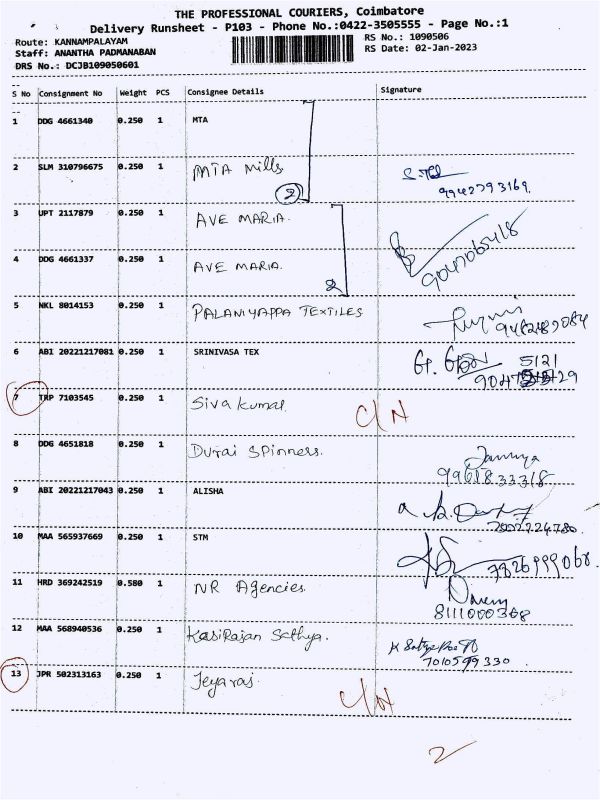 THE PROFESSIONAL COURIERS, Coimbatore
Delivery Runsheet - P103 - Phone No.:0422-3505555 - Page No.:1
Route: KANNAMPALAYAM RS No.: 1090506
Staff: ANANTHA PADMANABAN RS Date: 02-Jan-2023
DRS No.: DCJB109050601
S No Consignment No Weight PCS Consignee Details Signature
1 DDG 4661340 0.250 1 MTA
2 SLM 310796675 0.250 1 MTA Mills
2 9942793169.
3 UPT 2117879 0.250 1 AVE MARIA.
4 DDG 4661337 0.250 1 AVE MARIA. 2 9047065418
5 NKL 8014153 0.250 1 PALANIYAPPA TEXTILES
6 ABI 20221217081 0.250 1 SRINIVASA TEX
7 TRP 7103545 0.250 1 Siva kumar. C/N
8 DDG 4651818 0.250 1 Durai Spinners.
9 ABI 20221217043 0.250 1 ALISHA
10 MAA 565937669 0.250 1 STM
11 HRD 369242519 0.580 1 NR Agencies.
8111000368
12 MAA 568940536 0.250 1 KasiRajan Sathya.
7010599330
13 JPR 502313163 0.250 1 Jeyaraj. C/N
2